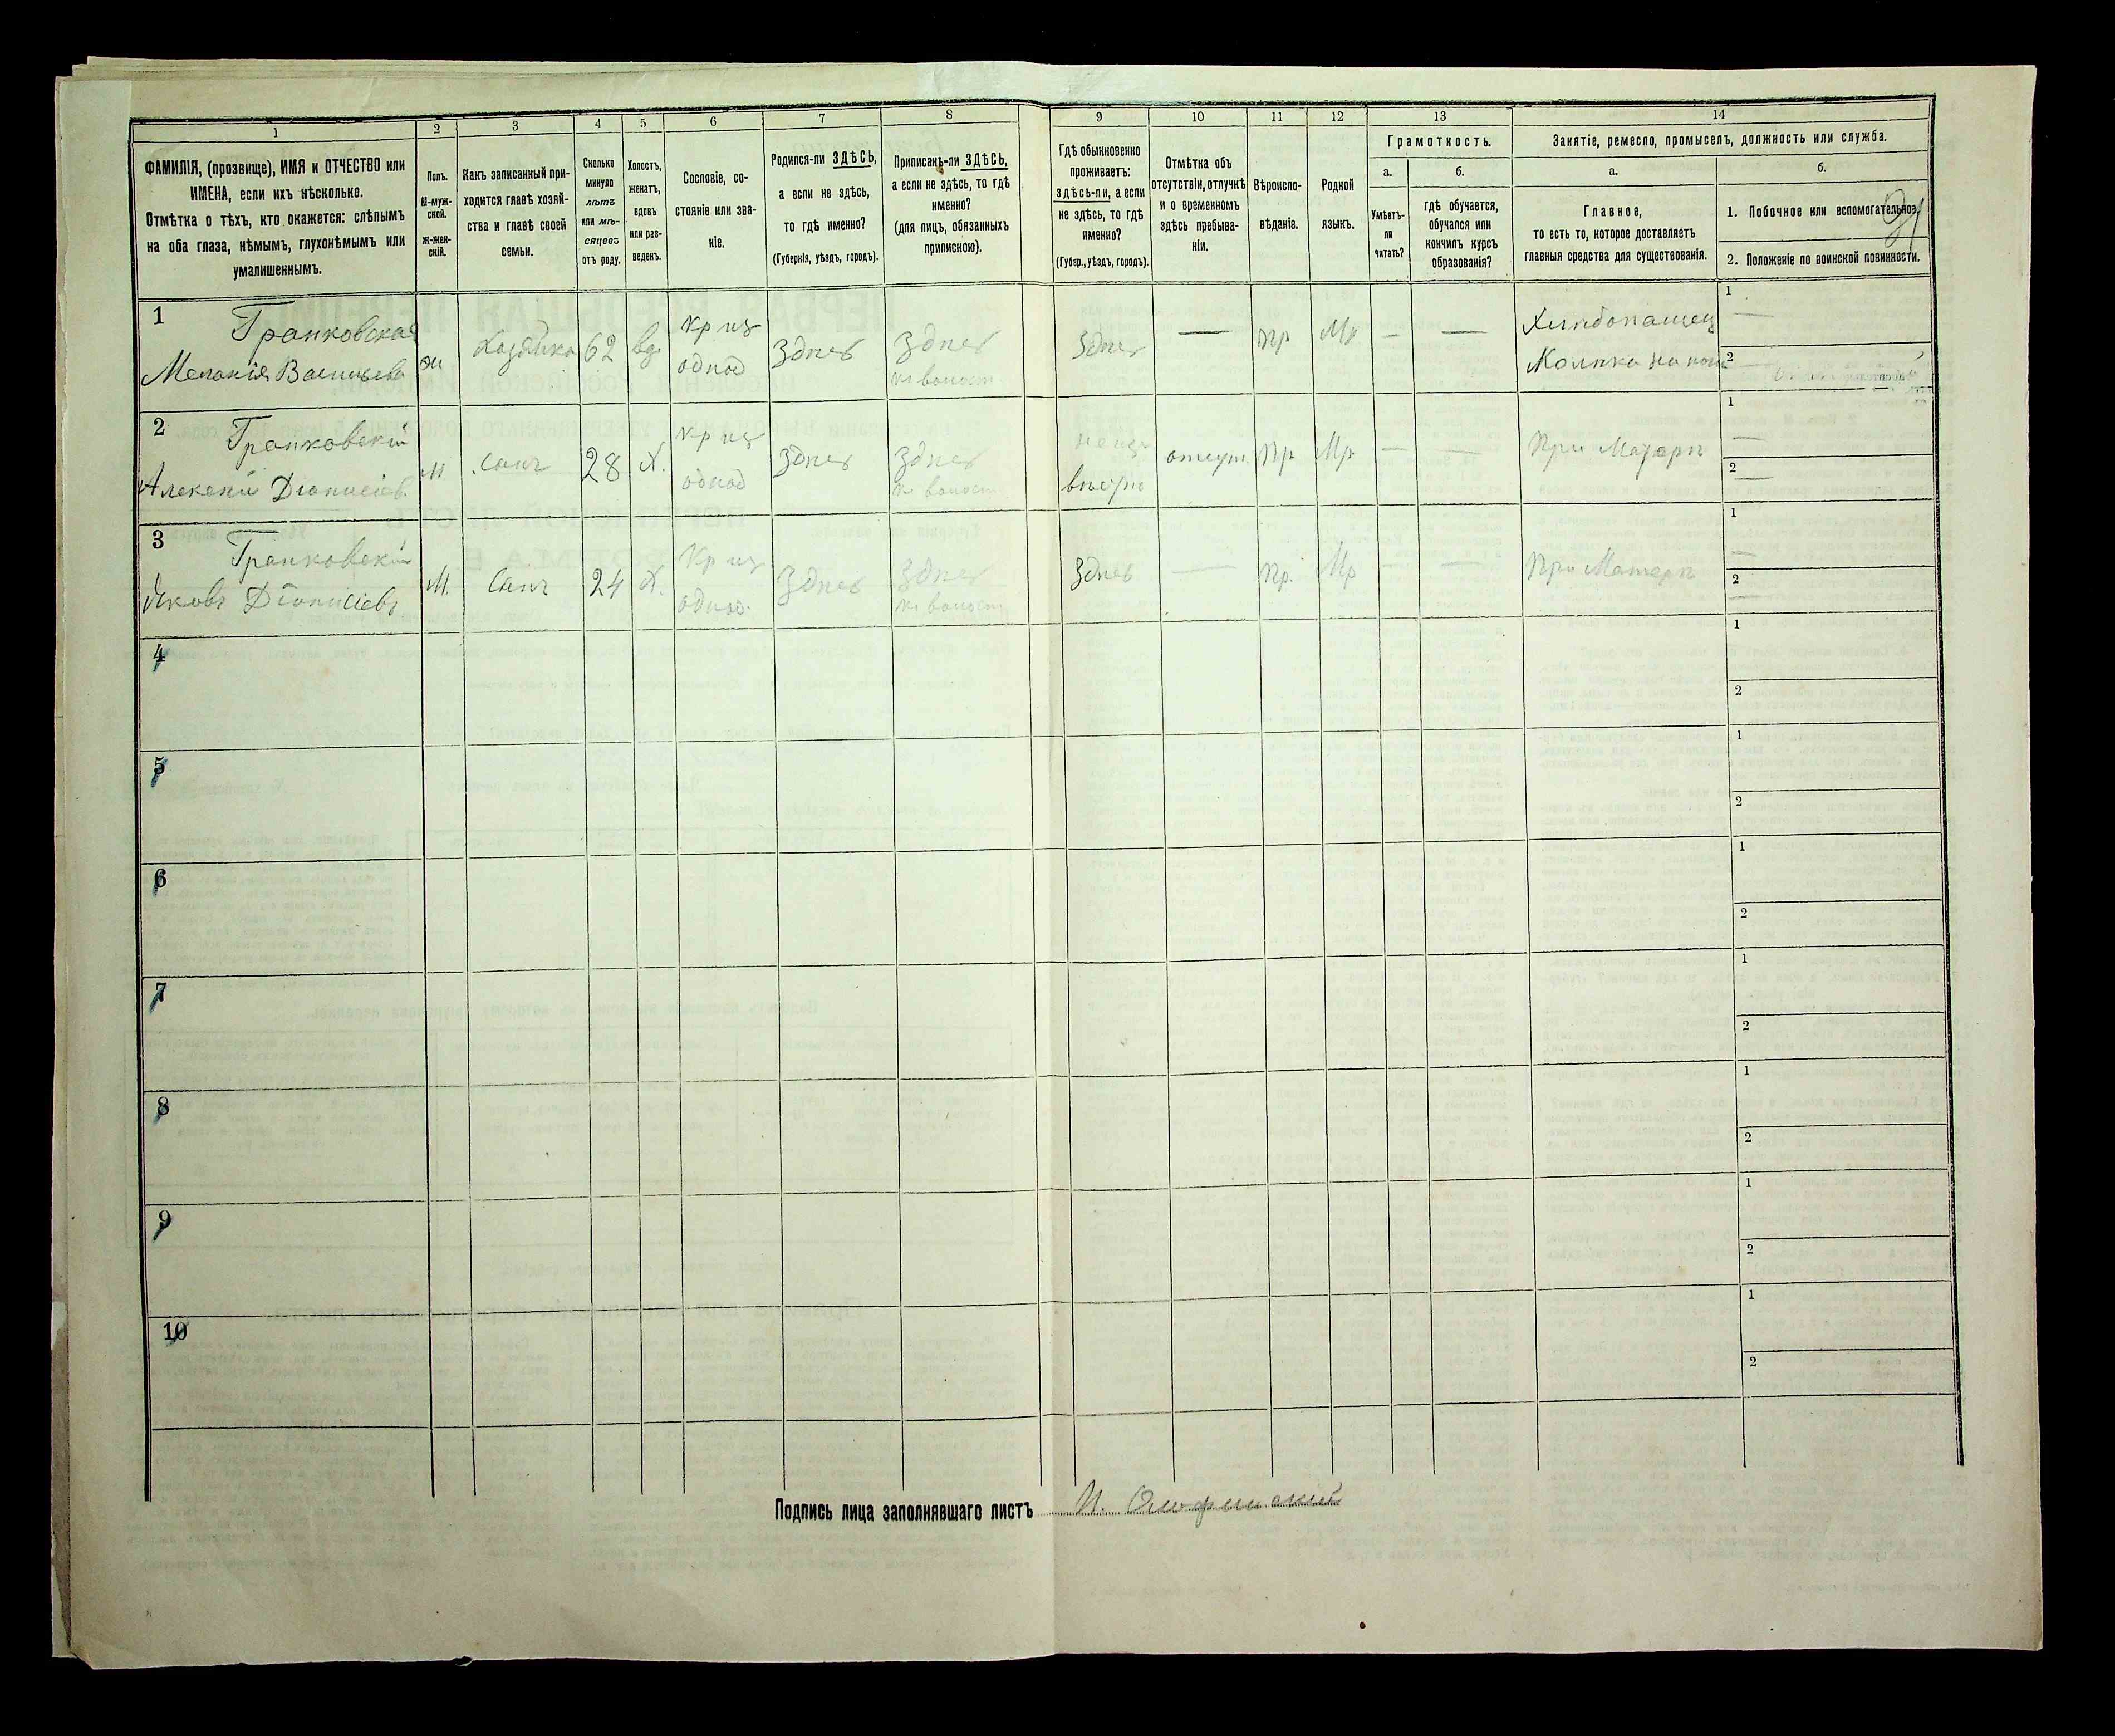 1 2 3 4 5 6 7 8 9 10 11 12 13 14
ФАМИЛІЯ, (прозвище), ИМЯ и ОТЧЕСТВО или
ИМЕНА, если ихъ нѣсколько.
Отмѣтка о тѣхъ, кто окажется: слѣпымъ
на оба глаза, нѣмымъ, глухонѣмымъ или
умалишеннымъ.
Полъ.
М-муж-
ской.
Ж-жен-
скій.
Какъ записанный при-
ходится главѣ хозяй-
ства и главѣ своей
семьи.
Сколько
минуло
лѣтъ
или мѣ-
сяцевъ
отъ роду.
Холостъ,
женатъ,
вдовъ
или раз-
веденъ.
Сословіе, со-
стояніе или зва-
ніе.
Родился-ли ЗДѢСЬ,
а если не здѣсь,
то гдѣ именно?
(Губернія, уѣздъ, городъ).
Приписанъ-ли ЗДѢСЬ,
а если не здѣсь, то гдѣ
именно?
(для лицъ, обязанныхъ
припискою).
Гдѣ обыкновенно
проживаетъ:
здѣсь-ли, а если
не здѣсь, то гдѣ
именно?
(Губер., уѣздъ, городъ).
Отмѣтка объ
отсутствіи, отлучкѣ
и о временномъ
здѣсь пребыва-
ніи.
Вѣроиспо-
вѣданіе.
Родной
языкъ.
Грамотность.
а.
Умѣетъ-
ли
читать?
б.
гдѣ обучается,
обучался или
кончилъ курсъ
образованія?
Занятіе, ремесло, промыселъ, должность или служба.
а.
Главное,
то есть то, которое доставляетъ
главныя средства для существованія.
б.
1. Побочное или вспомогательное.
2. Положеніе по воинской повинности.
1 Гранковская
Меланія Васильева
ж Хозяйка 62 вд. кр из однод здѣсь здѣсь къ волост
здѣсь — пр Мр — —
1 —
2 —
2 Гранковскій
Алексѣй Діонисіев.
М сынъ 28 Х. кр из однод здѣсь здѣсь къ волост
отсут. пр Мр — — При Матери
1 —
2 —
3 Гранковскій
Яковъ Діонисіевъ
М. сынъ 24 Х. кр из однод. здѣсь здѣсь къ волост
здѣсь — пр. Мр — — При Матери
1 —
2 —
4
1
2
5
1
2
6
1
2
7
1
2
8
1
2
9
1
2
10
1
2
Подпись лица заполнявшаго листъ И.